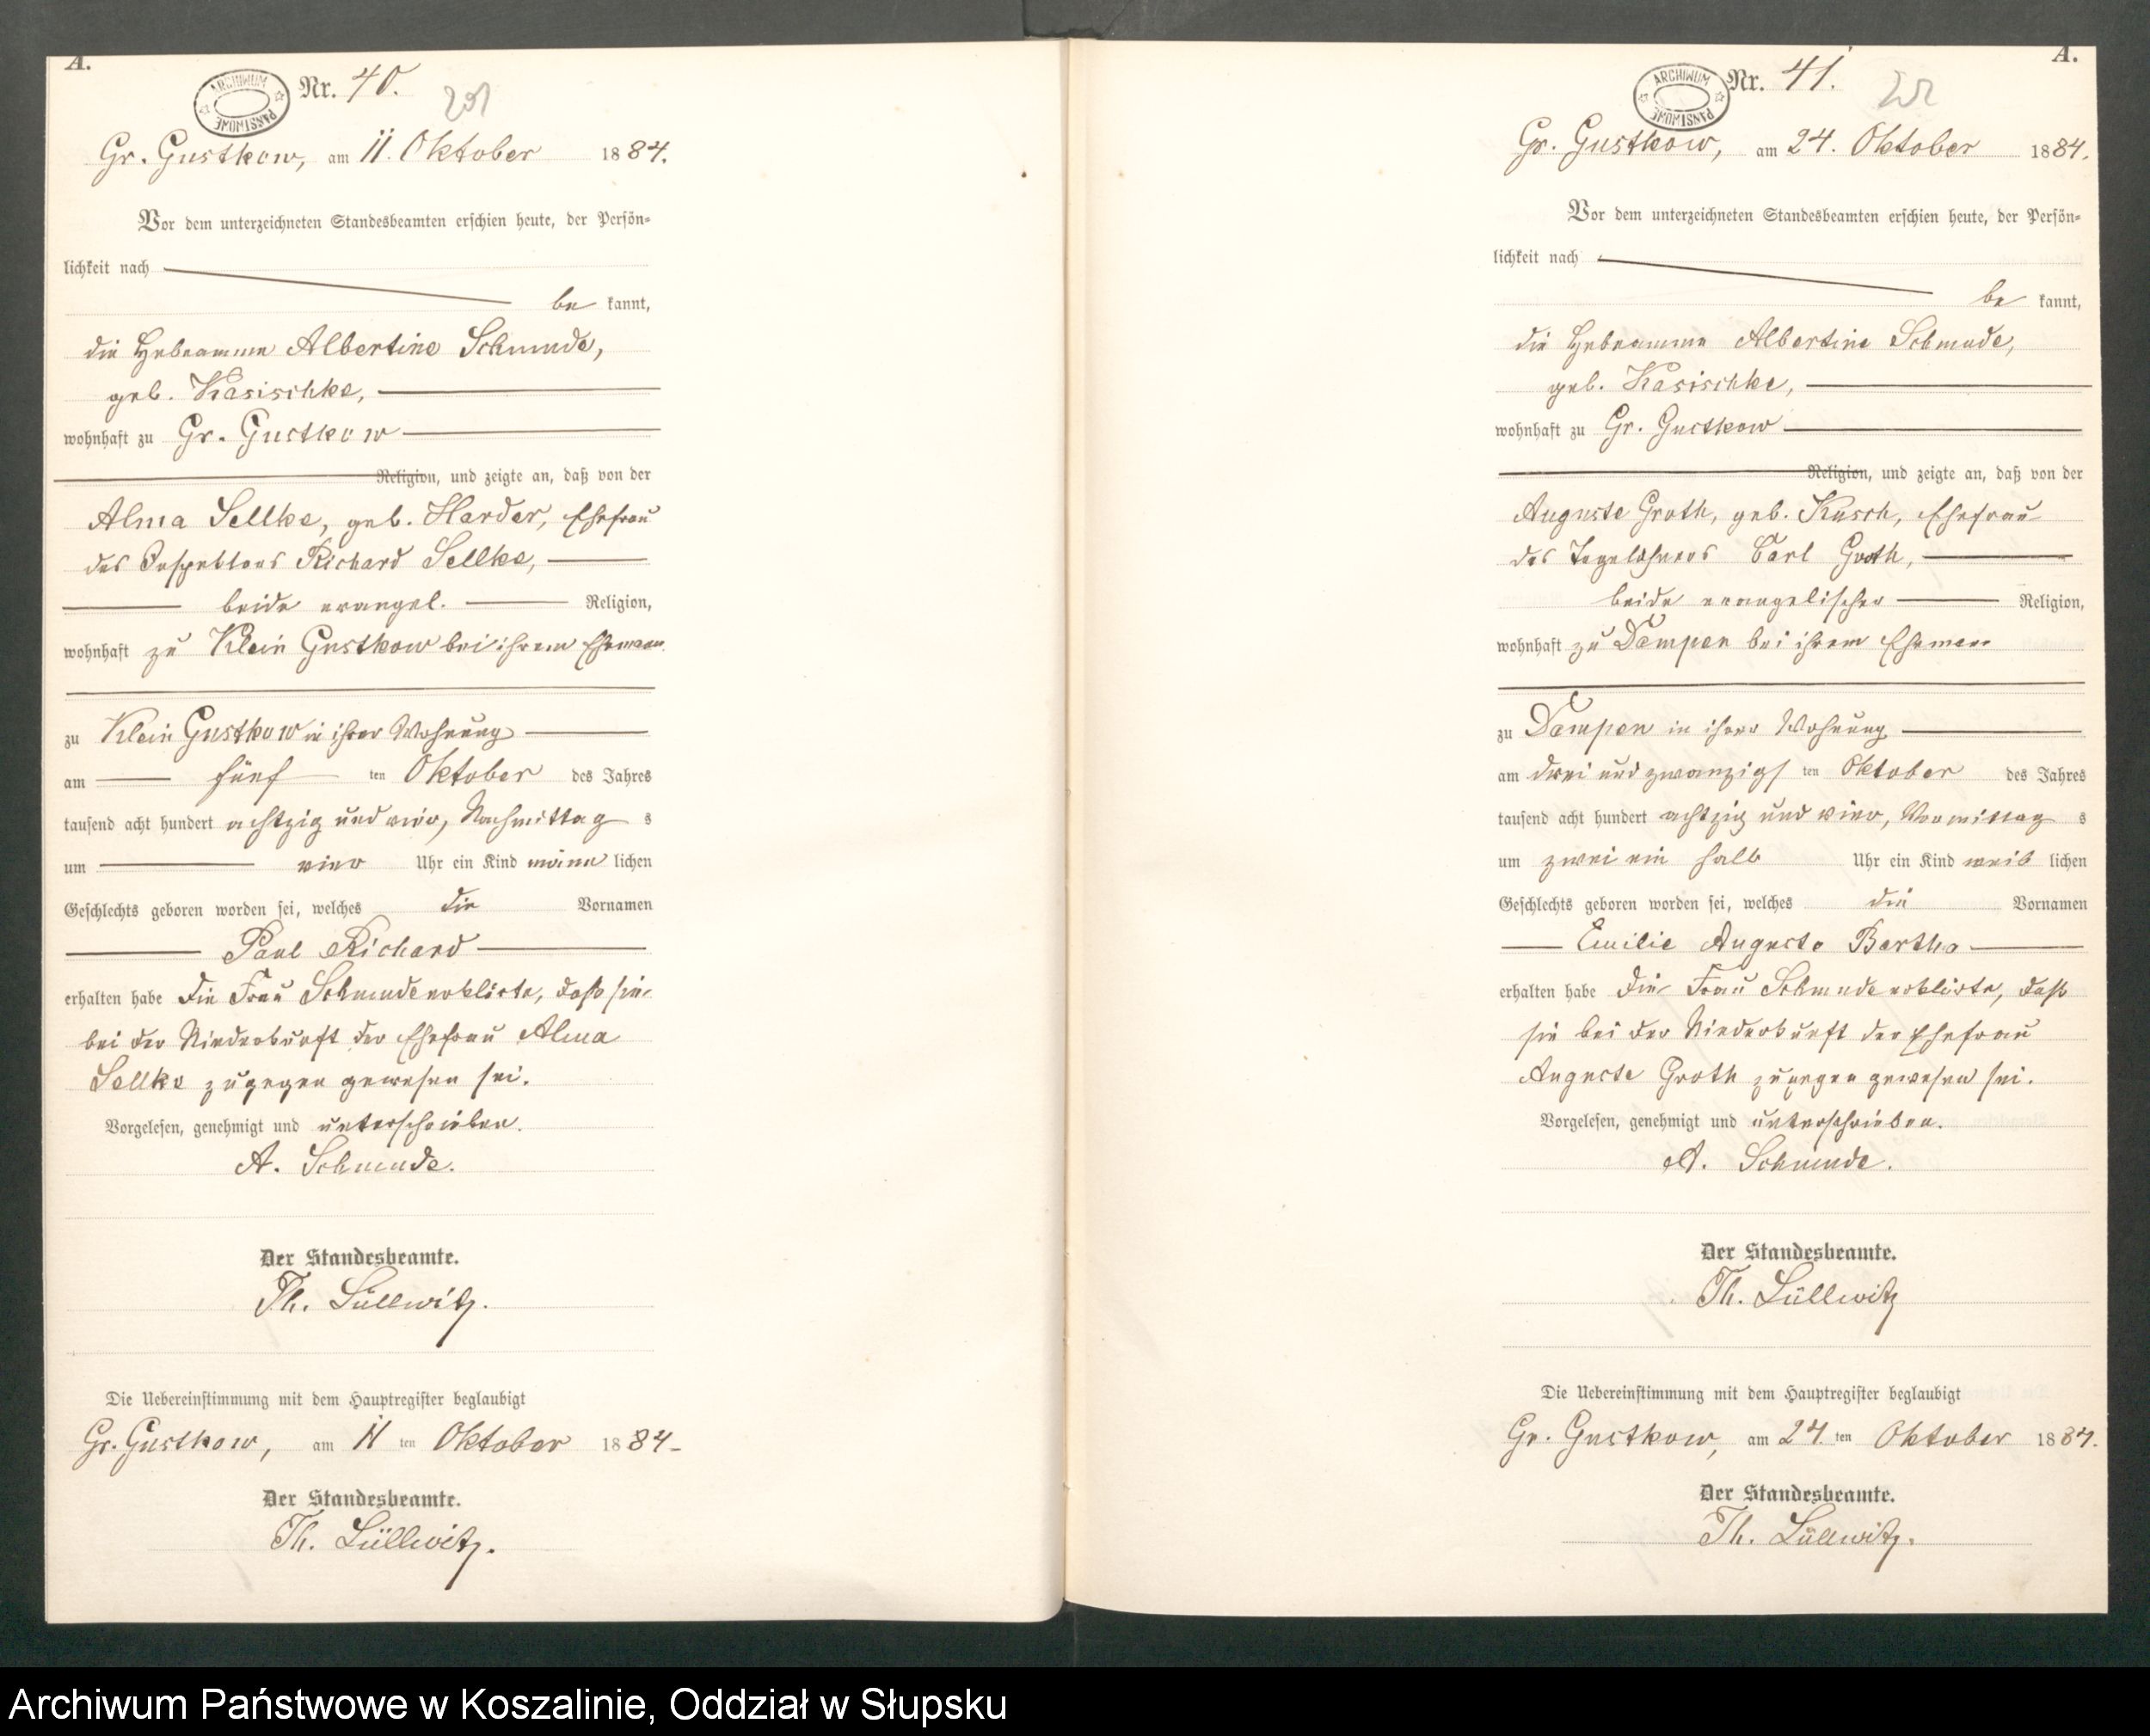 A.
ARCHIWUM PAŃSTWOWE
Nr. 40.
201
Gr. Gustkow, am 11. Oktober 1884.
Vor dem unterzeichneten Standesbeamten erschien heute, der Persön-
lichkeit nach
be kannt,
die Hebeamme Albertine Schmude,
geb. Kasischke,
wohnhaft zu Gr. Gustkow
Religion, und zeigte an, daß von der
Alma Sellke, geb. Harder, Ehefrau
des Inspektors Richard Sellke,
beide evangel. Religion,
wohnhaft zu Klein Gustkow bei ihrem Ehemann
zu Klein Gustkow in ihrer Wohnung
am fünf ten Oktober des Jahres
tausend acht hundert achtzig und vier, Nachmittag s
um vier Uhr ein Kind männ lichen
Geschlechts geboren worden sei, welches die Vornamen
Paul Richard
erhalten habe Die Frau Schmude erklärte, dass sie
bei der Niederkunft der Ehefrau Alma
Sellke zugegen gewesen sei.
Vorgelesen, genehmigt und unterschrieben.
A. Schmude.
Der Standesbeamte.
Th. Lüllwitz.
Die Uebereinstimmung mit dem Hauptregister beglaubigt
Gr. Gustkow, am 11 ten Oktober 1884.
Der Standesbeamte.
Th. Lüllwitz.
A.
ARCHIWUM PAŃSTWOWE
Nr. 41.
202
Gr. Gustkow, am 24. Oktober 1884.
Vor dem unterzeichneten Standesbeamten erschien heute, der Persön-
lichkeit nach
be kannt,
die Hebeamme Albertine Schmude,
geb. Kasischke,
wohnhaft zu Gr. Gustkow
Religion, und zeigte an, daß von der
Auguste Groth, geb. Kusch, Ehefrau
des Tagelöhners Carl Groth,
beide evangelischer Religion,
wohnhaft zu Dampen bei ihrem Ehemann
zu Dampen in ihrer Wohnung
am drei und zwanzigs ten Oktober des Jahres
tausend acht hundert achtzig und vier, Vormittag s
um zwei ein halb Uhr ein Kind weib lichen
Geschlechts geboren worden sei, welches die Vornamen
Emilie Auguste Bertha
erhalten habe Die Frau Schmude erklärte, dass
sie bei der Niederkunft der Ehefrau
Auguste Groth zugegen gewesen sei.
Vorgelesen, genehmigt und unterschrieben.
A. Schmude.
Der Standesbeamte.
Th. Lüllwitz
Die Uebereinstimmung mit dem Hauptregister beglaubigt
Gr. Gustkow, am 24. ten Oktober 1884.
Der Standesbeamte.
Th. Lüllwitz.
Archiwum Państwowe w Koszalinie, Oddział w Słupsku